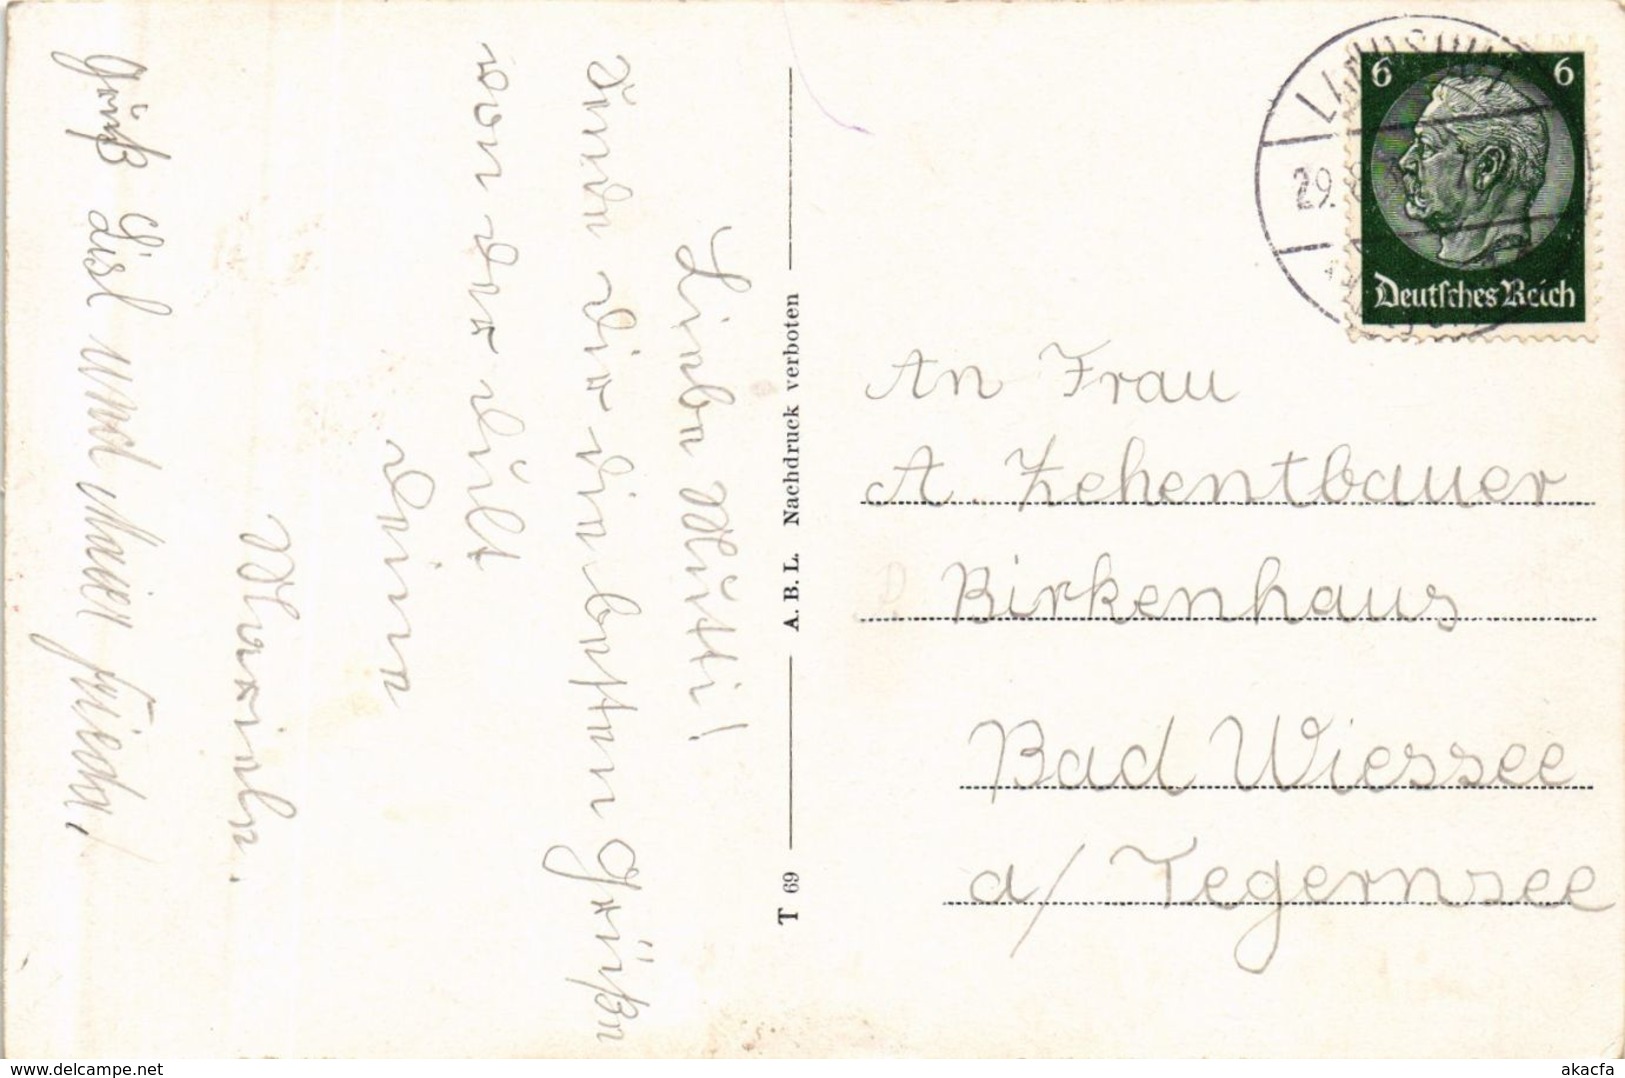 Liebe Mutti!
Sende dir die besten Grüße
von der Dult
Deine
Mariele.
Gruß Lisl und Maier Frieda!
A. B. L. Nachdruck verboten
T 69
6 6
Deutsches Reich
29.
An Frau
A. Zehentbauer
Birkenhaus
Bad Wiessee
a/ Tegernsee
delcampe.net
akacfa